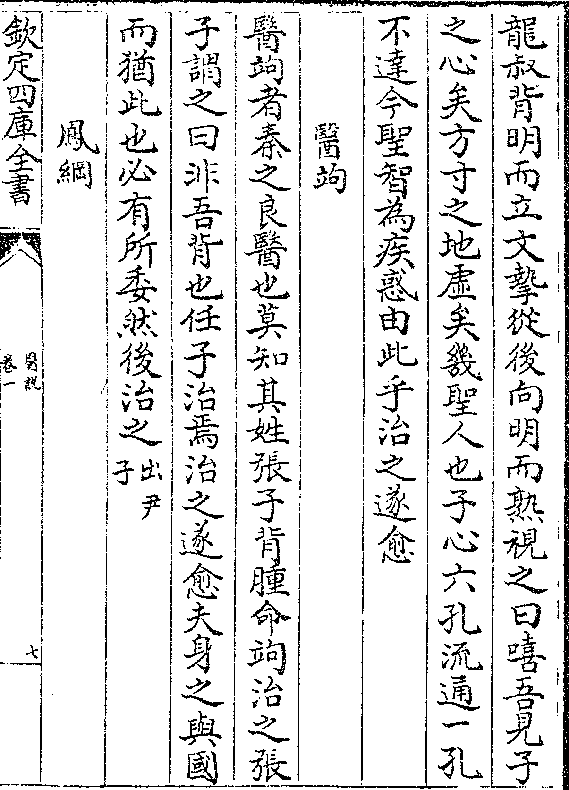 龍叔背明而立文摯從後向明而熟視之曰嘻吾見子
之心矣方寸之地虛矣幾聖人也子心六孔流通一孔
不達今聖智為疾惑由此乎治之遂愈
醫竘
醫竘者秦之良醫也莫知其姓張子背腫命竘治之張
子謂之曰非吾背也任子治焉治之遂愈夫身之與國
而猶此也必有所委然後治之出尹子
鳳綱
欽定四庫全書
醫說
卷一
七